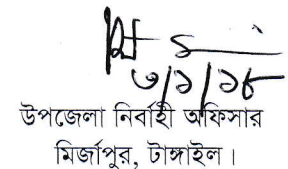 ৩/১/১৮
উপজেলা নির্বাহী অফিসার
মির্জাপুর, টাঙ্গাইল।